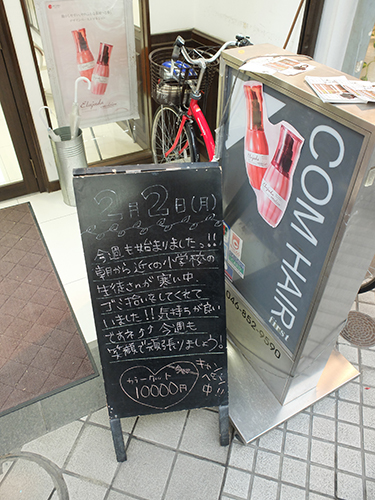 2月2日(月)
今週も始まりましたっ!!
朝から近くの小学校の
生徒さんが寒い中
ゴミ拾いをしてくれて
いました!!気持ちが良い
ですネ♪♪今週も
笑顔で頑張りましょう!
カラー・カット
10000円
キャン
ペーン
中!!
COM HAIR
first
046-852-9590